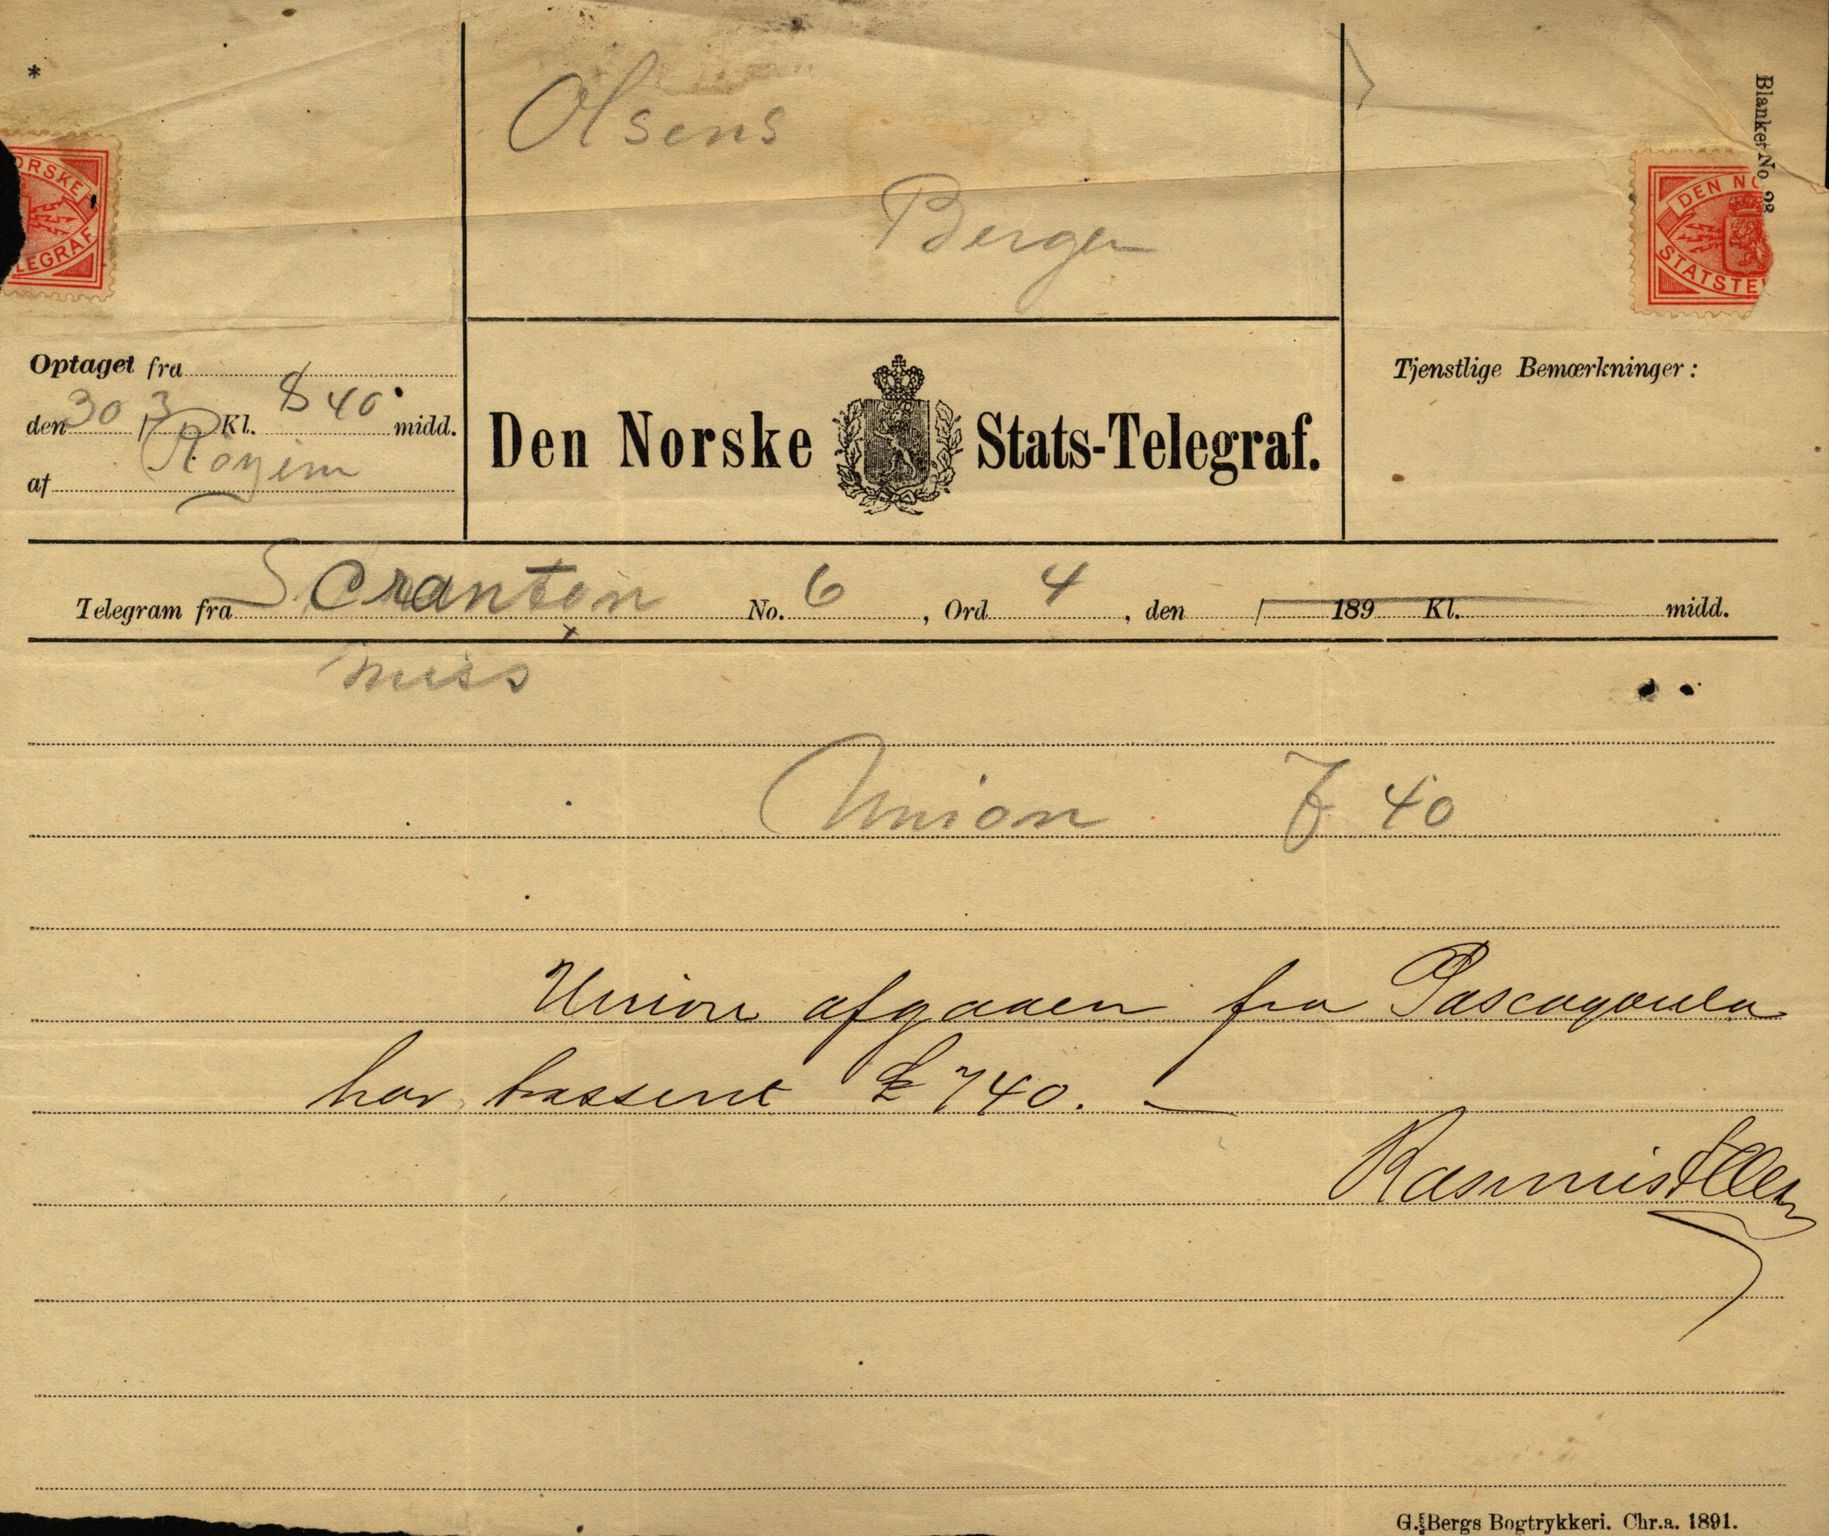 *
Olsens
Bergen
Blanket No. 
ORSKE
LEGRAF
DEN NO
STATSTE
Optaget fra
den 30/3 Kl. 8 40 midd.
af
Den Norske Stats-Telegraf.
Tjenstlige Bemærkninger:
Telegram fra Scranton No. 6, Ord 4, den / 189 Kl. midd.
Miss
Union 40
Union afgaaen fra Pascagoula
har trassent £ 740. —
Rasmus
G. Bergs Bogtrykkeri. Chr.a. 1891.